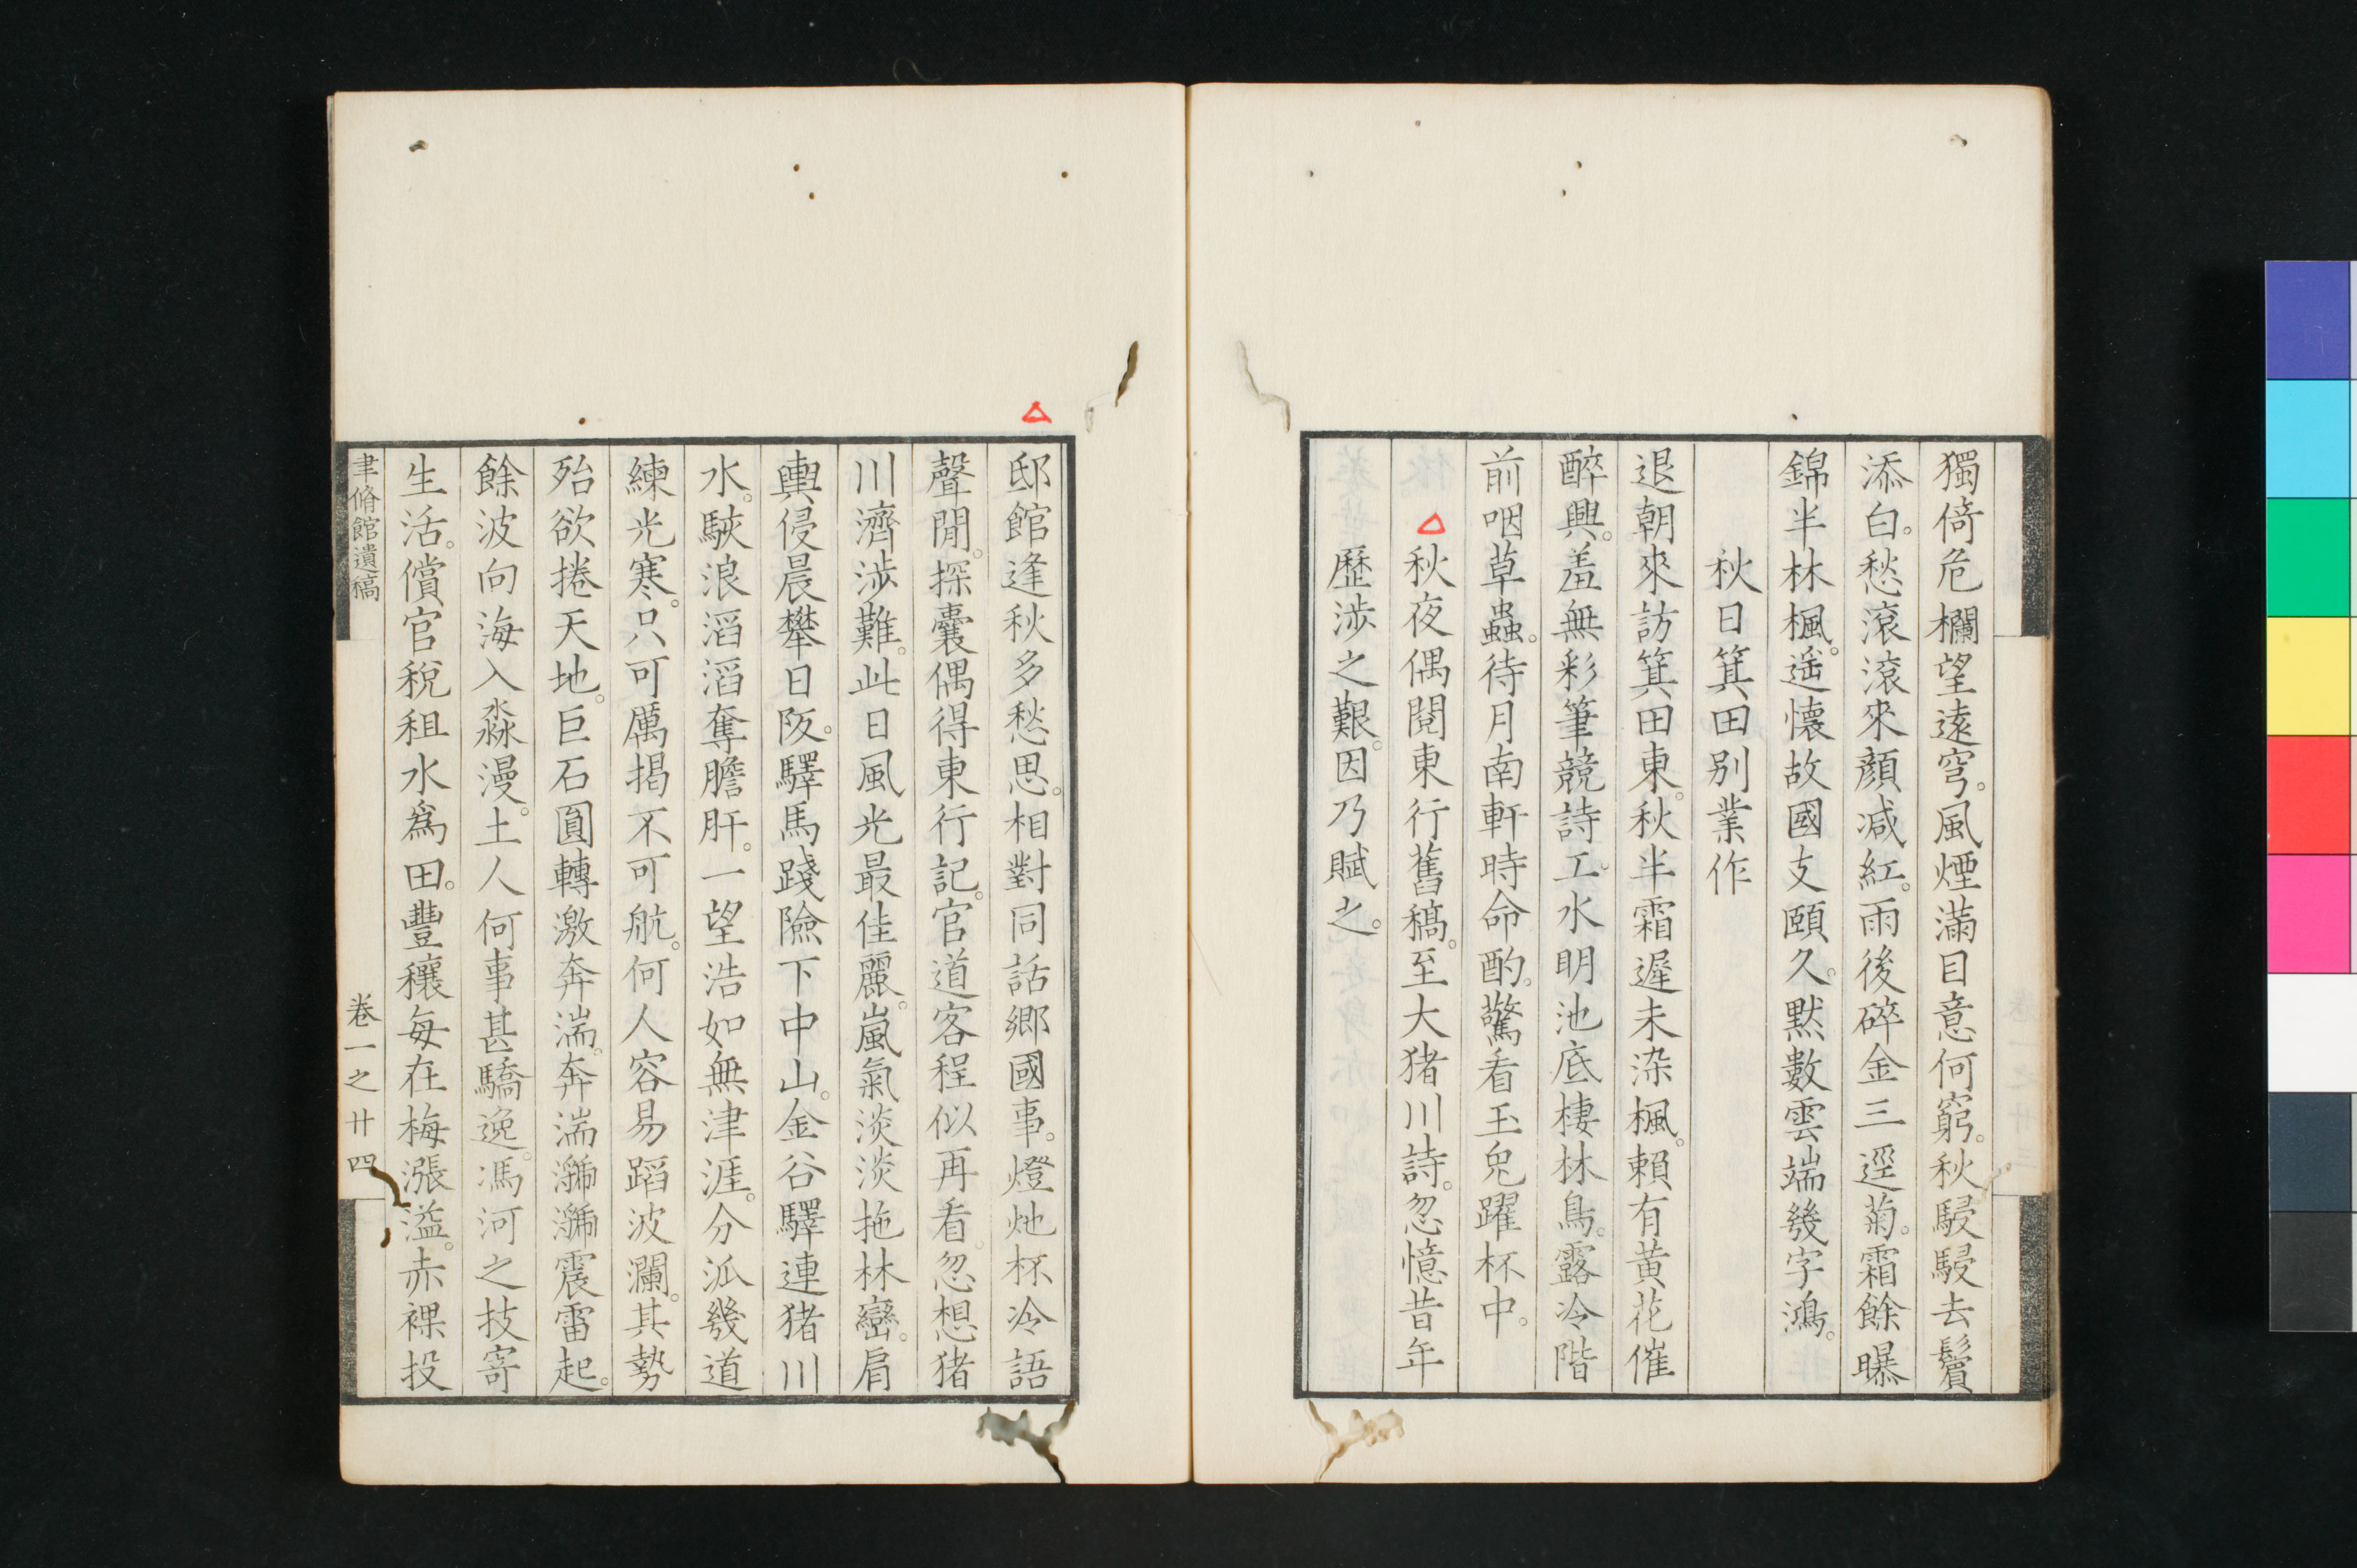 獨倚危欄望遠穹。風煙滿目意何窮。秋駸駸去鬢
添白。愁滾滾來顏減紅。雨後碎金三逕菊。霜餘曝
錦半林楓。遥懷故國支頤久。默數雲端幾字鴻。
秋日箕田別業作
退朝來訪箕田東。秋半霜遲未染楓。賴有黃花催
醉興。羞無彩筆競詩工。水明池底棲林鳥。露冷階
前咽草蟲。待月南軒時命酌。驚看玉兔躍杯中。
秋夜偶閱東行舊稿。至大猪川詩。忽憶昔年
歷涉之艱。因乃賦之。
邸館逢秋多愁思。相對同話鄉國事。燈灺杯冷語
聲閒。探囊偶得東行記。官道客程似再看。忽想猪
川濟涉難。此日風光最佳麗。嵐氣淡淡拖林巒。肩
輿侵晨攀日阪。驛馬踐險下中山。金谷驛連猪川
水。駛浪滔滔奪膽肝。一望浩如無津涯。分派幾道
練光寒。只可厲揭不可航。何人容易蹈波瀾。其勢
殆欲捲天地。巨石圓轉激奔湍。奔湍㵧㵧震雷起。
餘波向海入淼漫。土人何事甚驕逸。馮河之技寄
生活。償官稅租水為田。豐穰每在梅漲溢。赤裸投
聿脩館遺稿
卷一之廿四